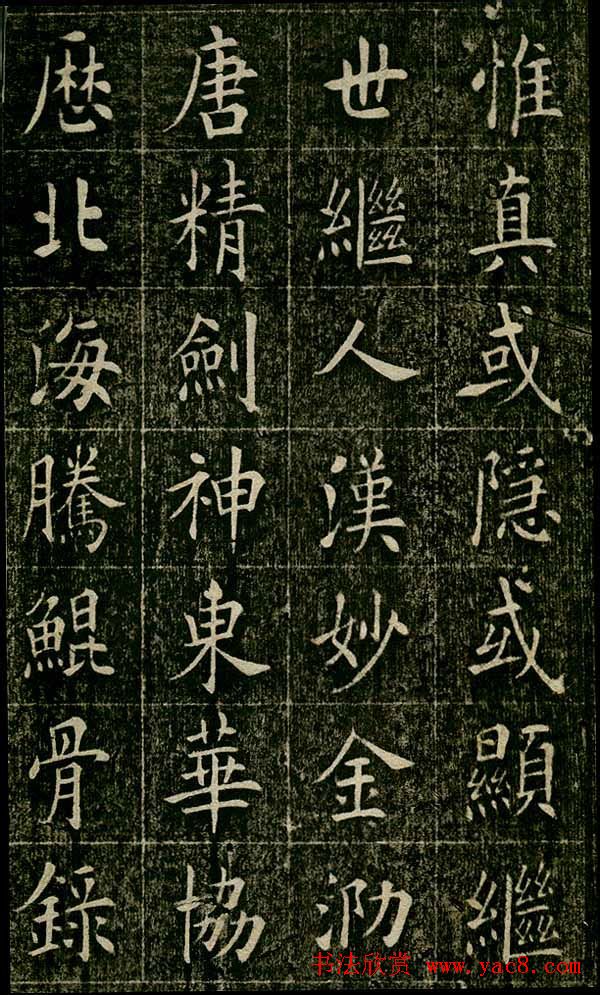 惟真或隱或顯繼
世繼人漢妙金泐
唐精劍神東華協
厯北海騰鯤骨錄
书法欣赏 www.yac8.com